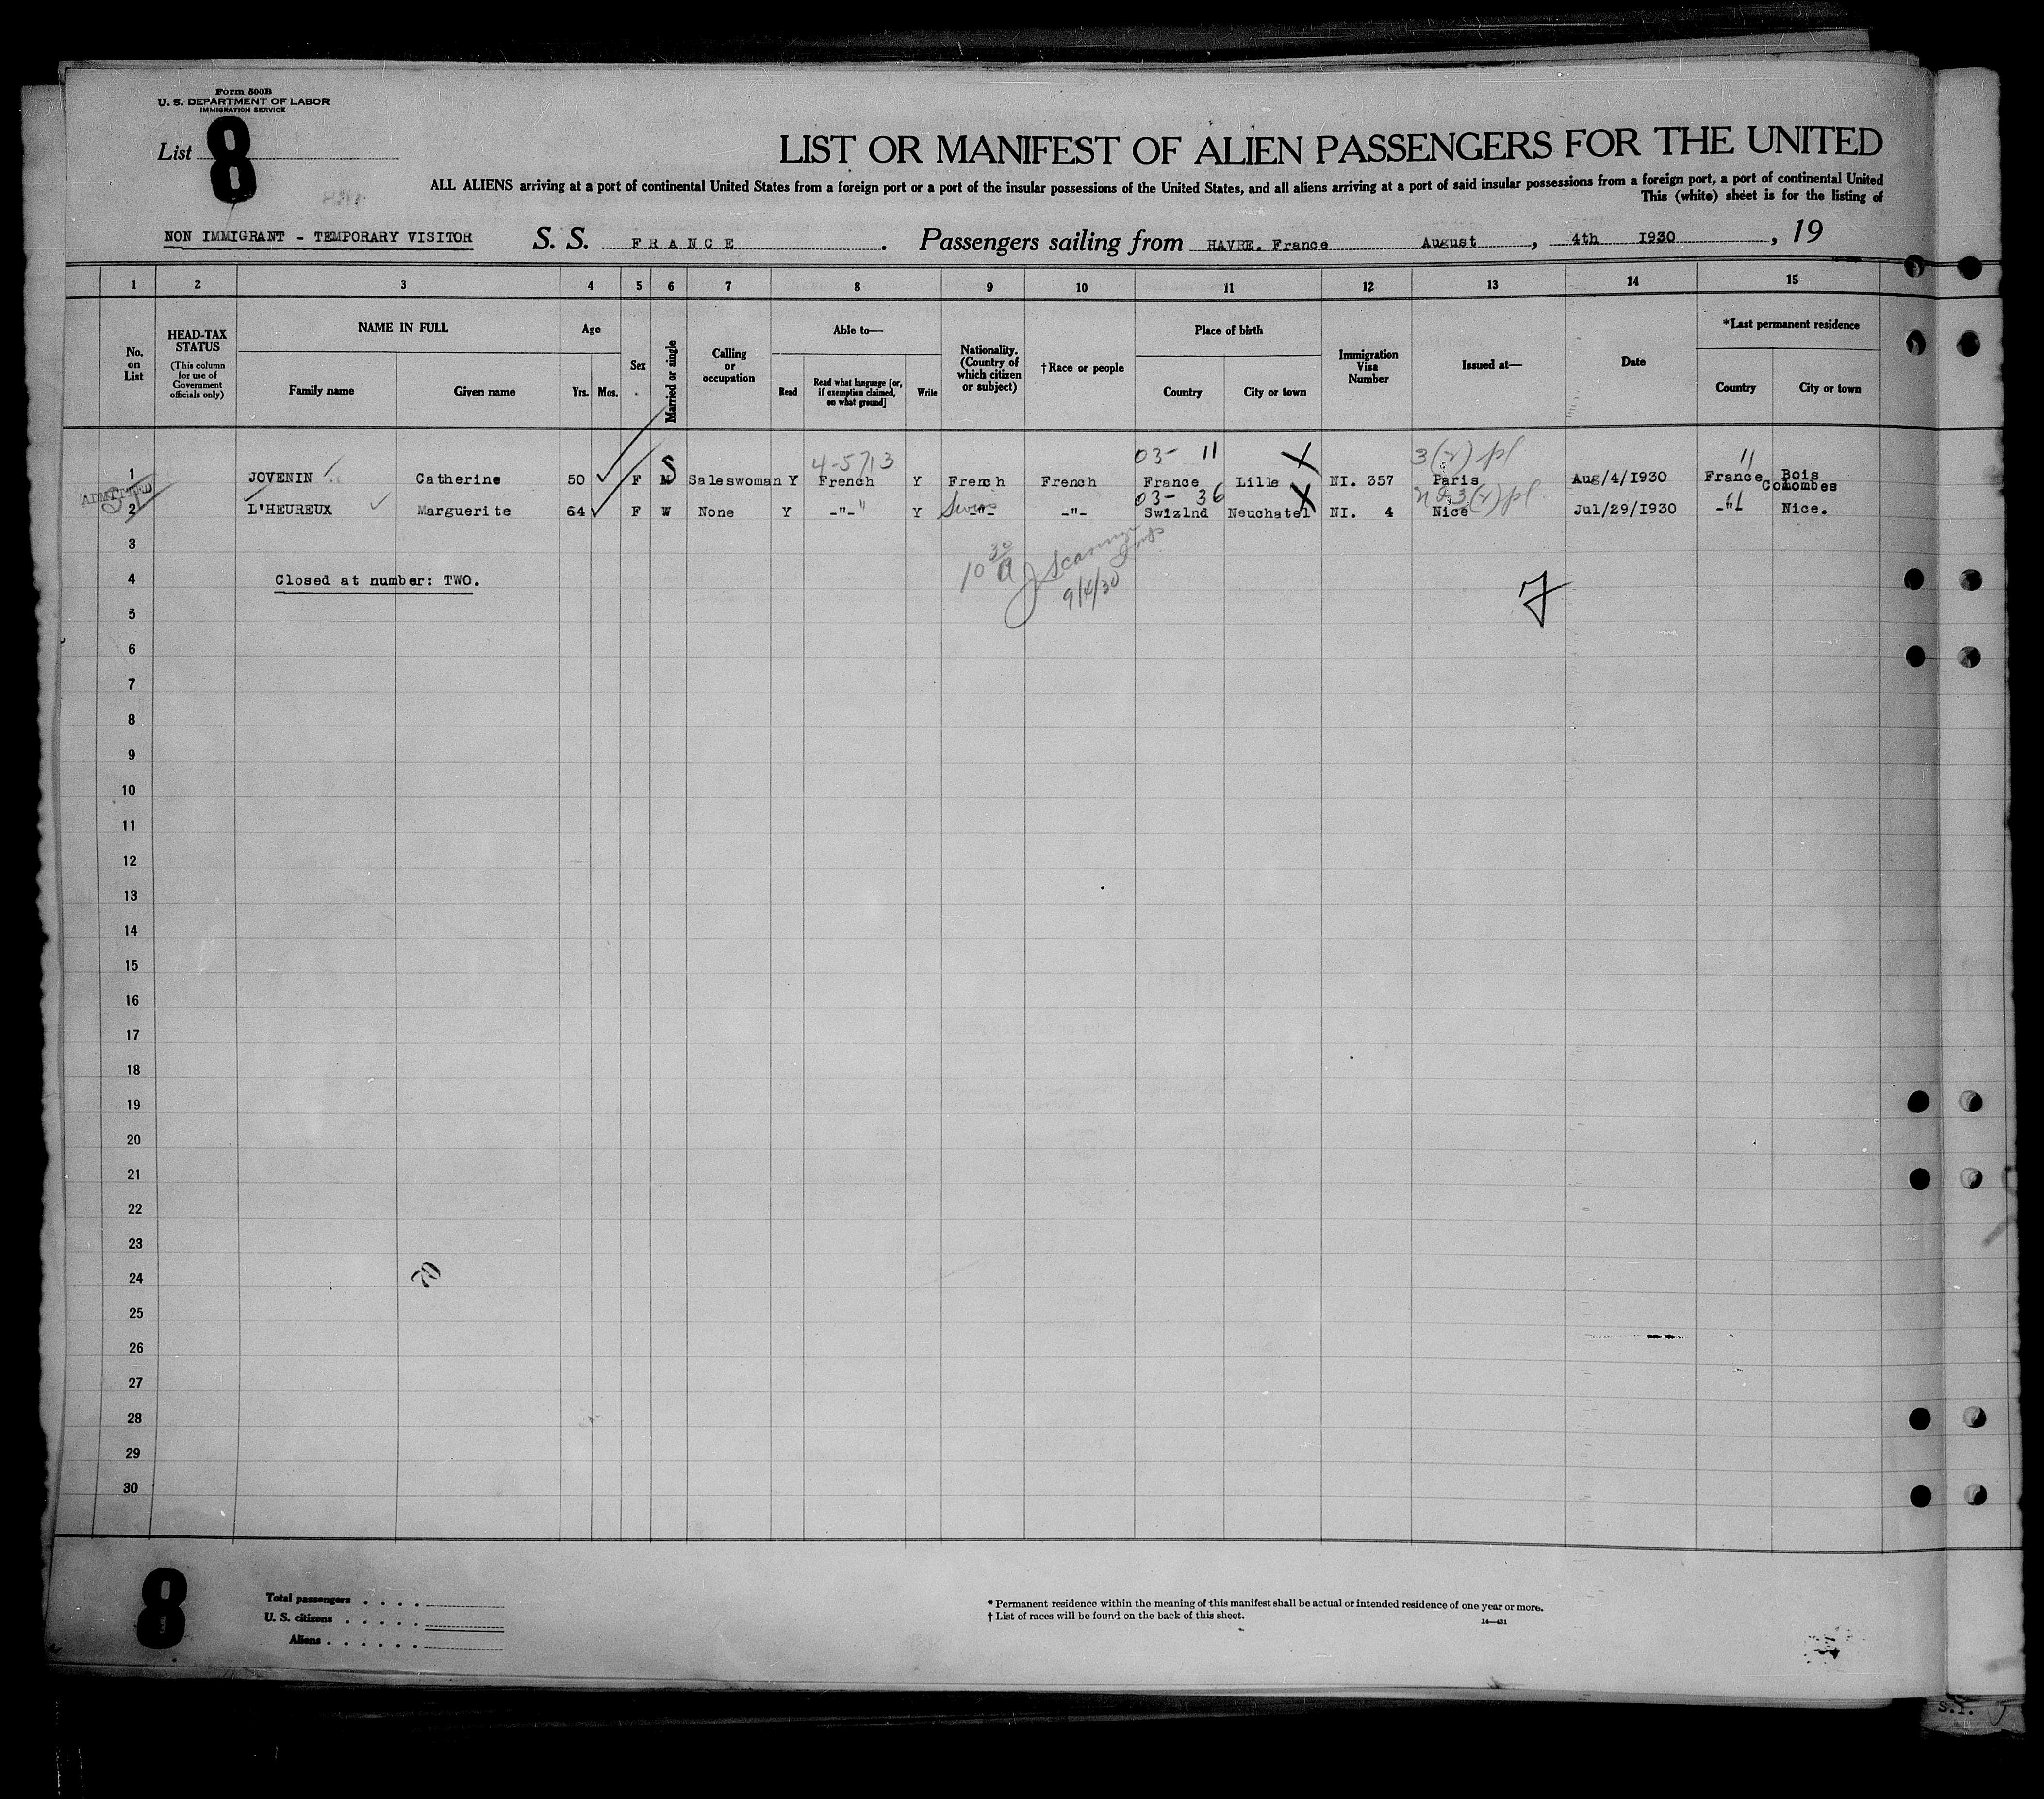 Form 500B
U. S. DEPARTMENT OF LABOR
IMMIGRATION SERVICE
List 8
LIST OR MANIFEST OF ALIEN PASSENGERS FOR THE UNITED
ALL ALIENS arriving at a port of continental United States from a foreign port or a port of the insular possessions of the United States, and all aliens arriving at a port of said insular possessions from a foreign port, a port of continental United
This (white) sheet is for the listing of
NON IMMIGRANT - TEMPORARY VISITOR S. S. FRANCE. Passengers sailing from HAVRE. France August, 4th 1930, 19
1 2 3 4 5 6 7 8 9 10 11 12 13 14 15
No. on List
HEAD-TAX STATUS
(This column for use of Government officials only)
NAME IN FULL
Family name Given name
Age
Yrs. Mos.
Sex
Married or single
Calling or occupation
Able to—
Read Read what language [or, if exemption claimed, on what ground] Write
Nationality. (Country of which citizen or subject)
†Race or people
Place of birth
Country City or town
Immigration Visa Number
Issued at—
Date
*Last permanent residence
Country City or town
4-5713 03- 11 X 3(2) pl 11
1 JOVENIN Catherine 50 F M S Saleswoman Y French Y French French France Lille NI. 357 Paris Aug/4/1930 France Bois Colombes
ADMITTED
03- 36 X 3(2) pl
2 L'HEUREUX Marguerite 64 F W None Y -"- Y -"- Swiss -"- Swizlnd Neuchatel NI. 4 Nice Jul/29/1930 -"- Nice.
3
10 30 A
9/4/30
4 Closed at number: TWO.
5
6
7
8
9
10
11
12
13
14
15
16
17
18
19
20
21
22
23
24
25
26
27
28
29
30
8
Total passengers
U. S. citizens
Aliens
* Permanent residence within the meaning of this manifest shall be actual or intended residence of one year or more.
† List of races will be found on the back of this sheet.
14—431
S.I.